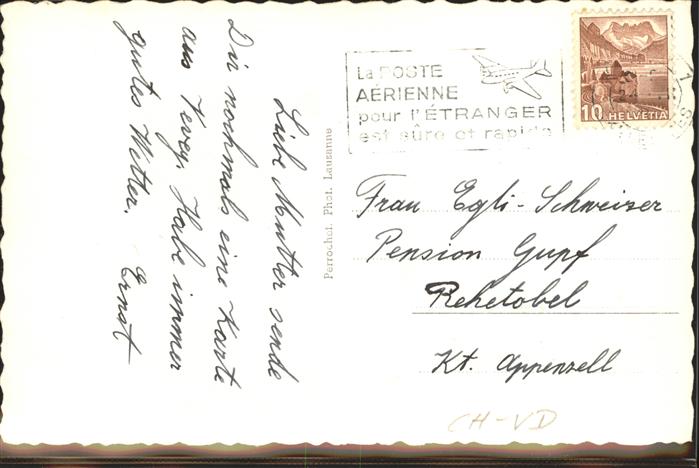 Liebe Mutter sende
Dir nochmals eine Karte
aus Vevey. Habe immer
gutes Wetter.
Ernst
Perrochet. Phot. Lausanne
La POSTE
AÉRIENNE
pour l'ÉTRANGER
est sûre et rapide
10 HELVETIA
Frau Egli-Schweizer
Pension Gupf
Rehetobel
Kt. Appenzell
CH-VD